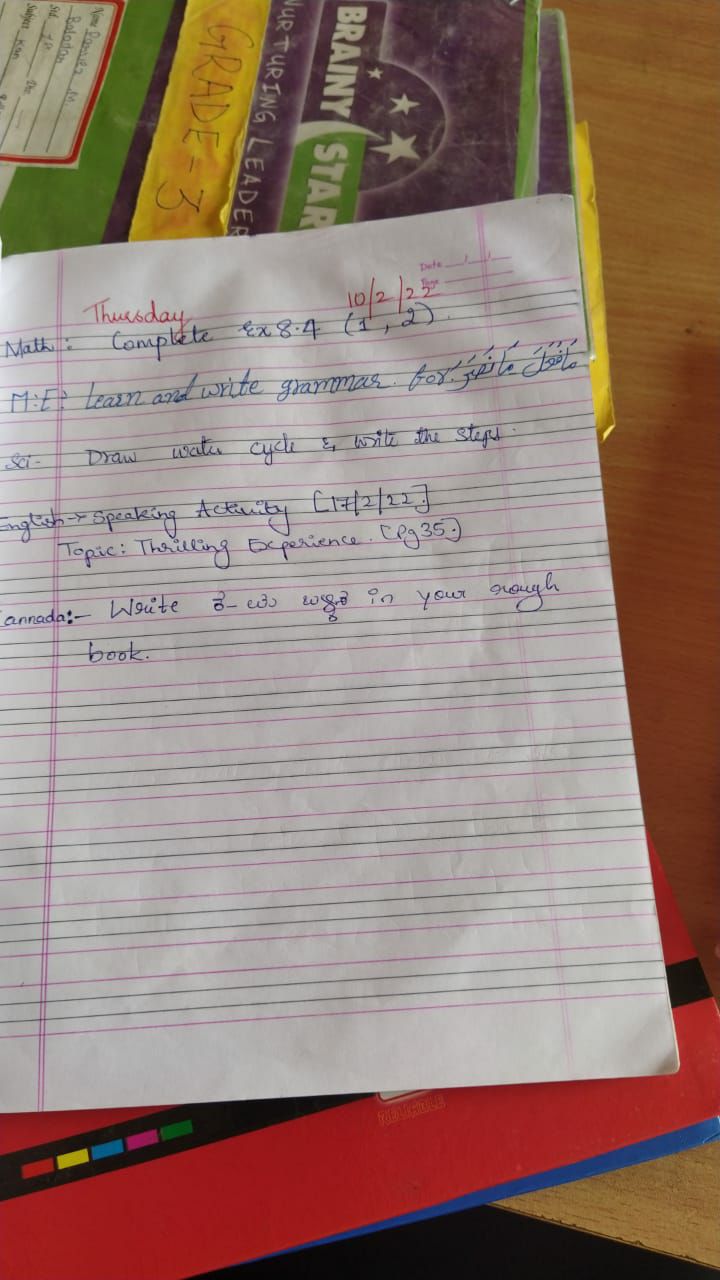 BRAINY STAR
NURTURING LEADER
GRADE-3
Name
Std
Subject Kan
Date
Page
Thursday 10/2/22
Math: Complete Ex 8.4 (1, 2).
M.E: Learn and write grammar. for
Sci- Draw water cycle & write the steps.
English→ Speaking Activity [17/2/22]
Topic: Thrilling Experience. [Pg 35.]
annada:- Write in your rough
book.
RELIABLE